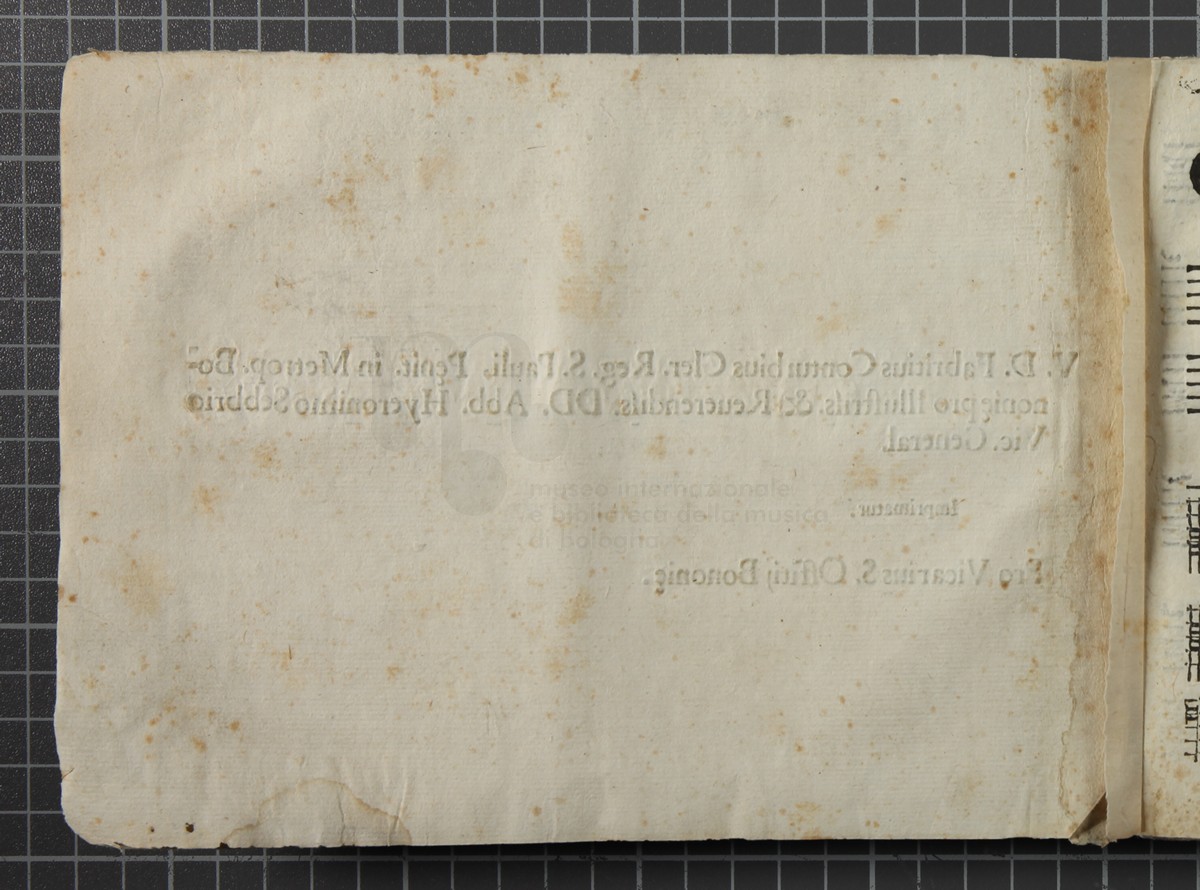 V. D. Fabritius Conturbius Cler. Reg. S. Pauli, Penit. in Metrop. Bo-
nonię pro Illustriss. & Reuerendiss. DD. Abb. Hyeronimo
Vic. General.
Imprimatur;
Pro Vicarius S. Offitij Bononię.
museo internazionale
e biblioteca della musica
di bologna